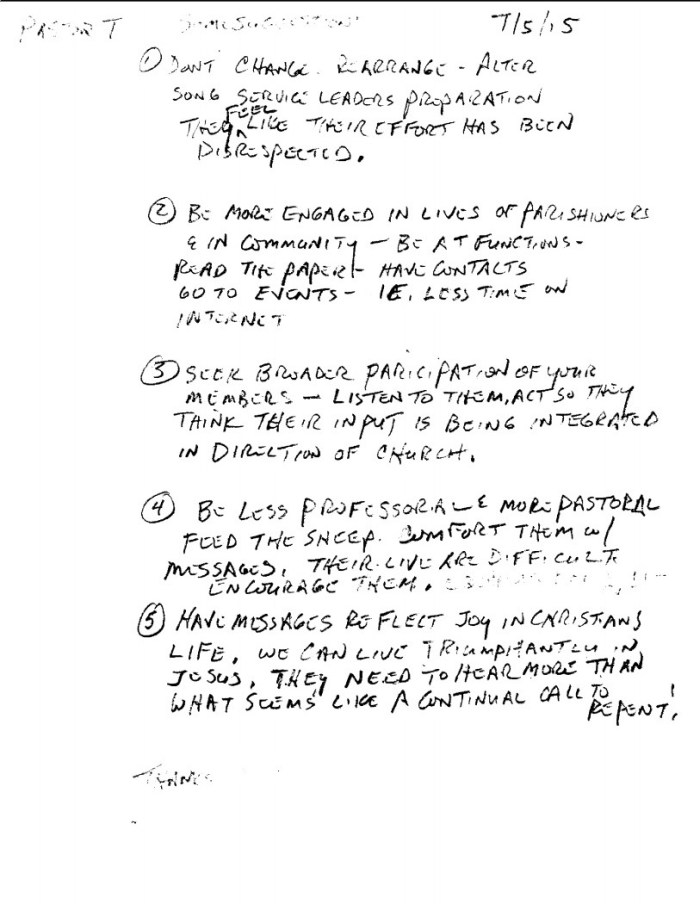 PASTOR T SOME SUGGESTIONS 7/5/15
① DON'T CHANGE. REARRANGE - ALTER
SONG SERVICE LEADERS PREPARATION
FEEL
THEY ^ LIKE THEIR EFFORT HAS BEEN
DISRESPECTED.
② BE MORE ENGAGED IN LIVES OF PARISHIONERS
& IN COMMUNITY - BE AT FUNCTIONS -
READ THE PAPER - HAVE CONTACTS
GO TO EVENTS - IE. LESS TIME ON
INTERNET
③ SEEK BROADER PARICIPATION OF YOUR
MEMBERS - LISTEN TO THEM, ACT SO THEY
THINK THEIR INPUT IS BEING INTEGRATED
IN DIRECTION OF CHURCH.
④ BE LESS PROFESSORIAL & MORE PASTORAL
FEED THE SHEEP. COMFORT THEM W/
MESSAGES. THEIR LIVE ARE DIFFICULT
ENCOURAGE THEM.
⑤ HAVE MESSAGES REFLECT JOY IN CHRISTIANS
LIFE. WE CAN LIVE TRIUMPHANTLY IN
JESUS. THEY NEED TO HEAR MORE THAN
WHAT SEEMS LIKE A CONTINUAL CALL TO
REPENT!
THANKS